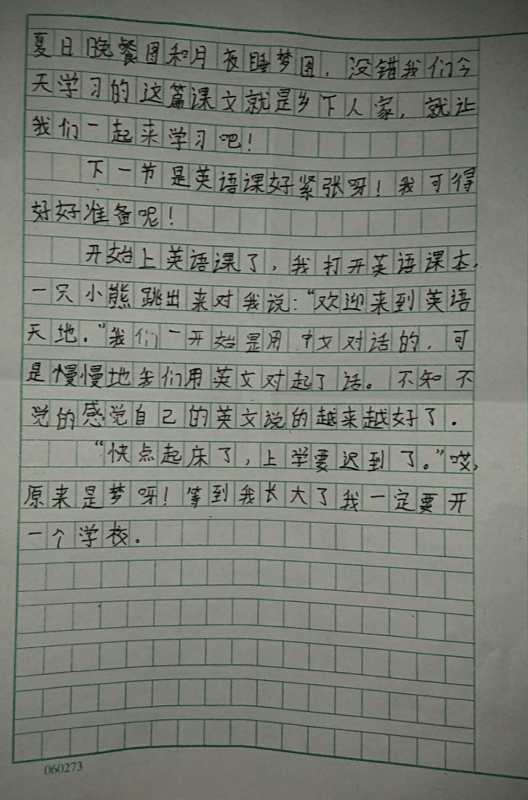 夏日晚餐图和月夜睡梦图，没错我们今
天学习的这篇课文就是乡下人家，就让
我们一起来学习吧！
下一节是英语课好紧张呀！我可得
好好准备呢！
开始上英语课了，我打开英语课本，
一只小熊跳出来对我说：“欢迎来到英语
天地。”我们一开始是用中文对话的，可
是慢慢地我们用英文对起了话。不知不
觉的感觉自己的英文说的越来越好了．
“快点起床了，上学要迟到了。”哎，
原来是梦呀！等到我长大了我一定要开
一个学校．
060273